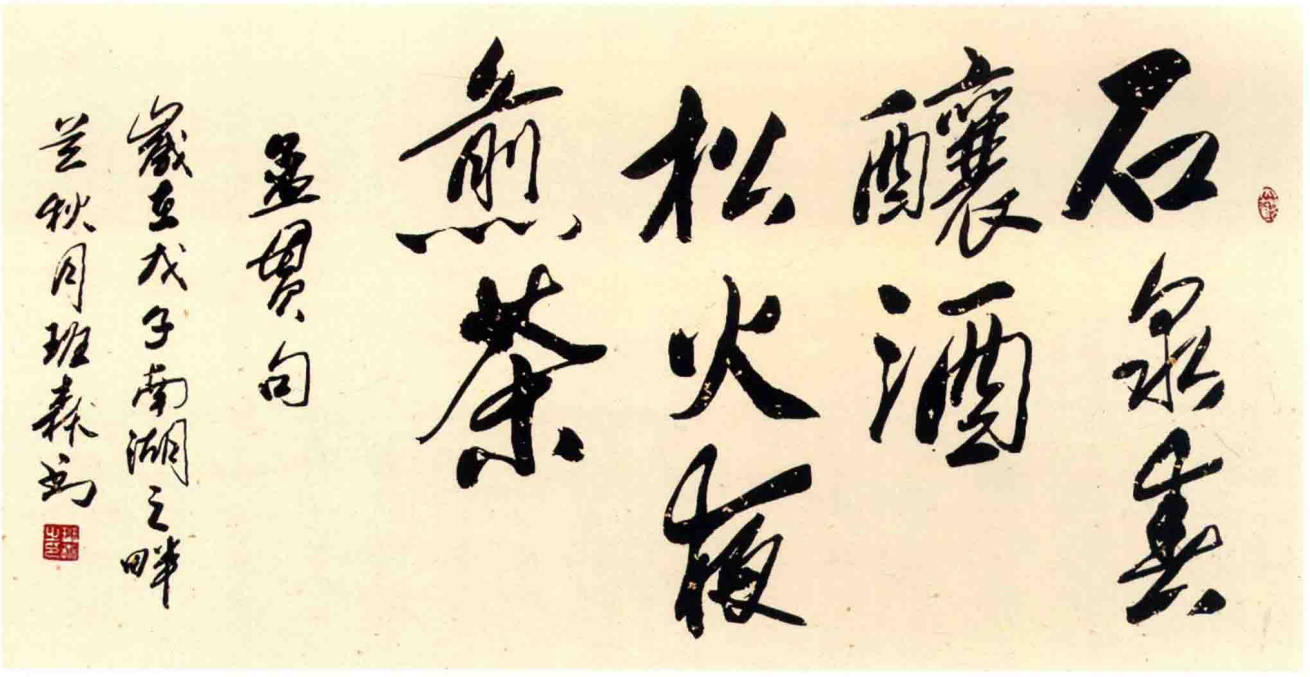 石泉春
釀酒
松火夜
煎茶
孟貫句
歲在戊子南湖之畔
兰秋月班森書